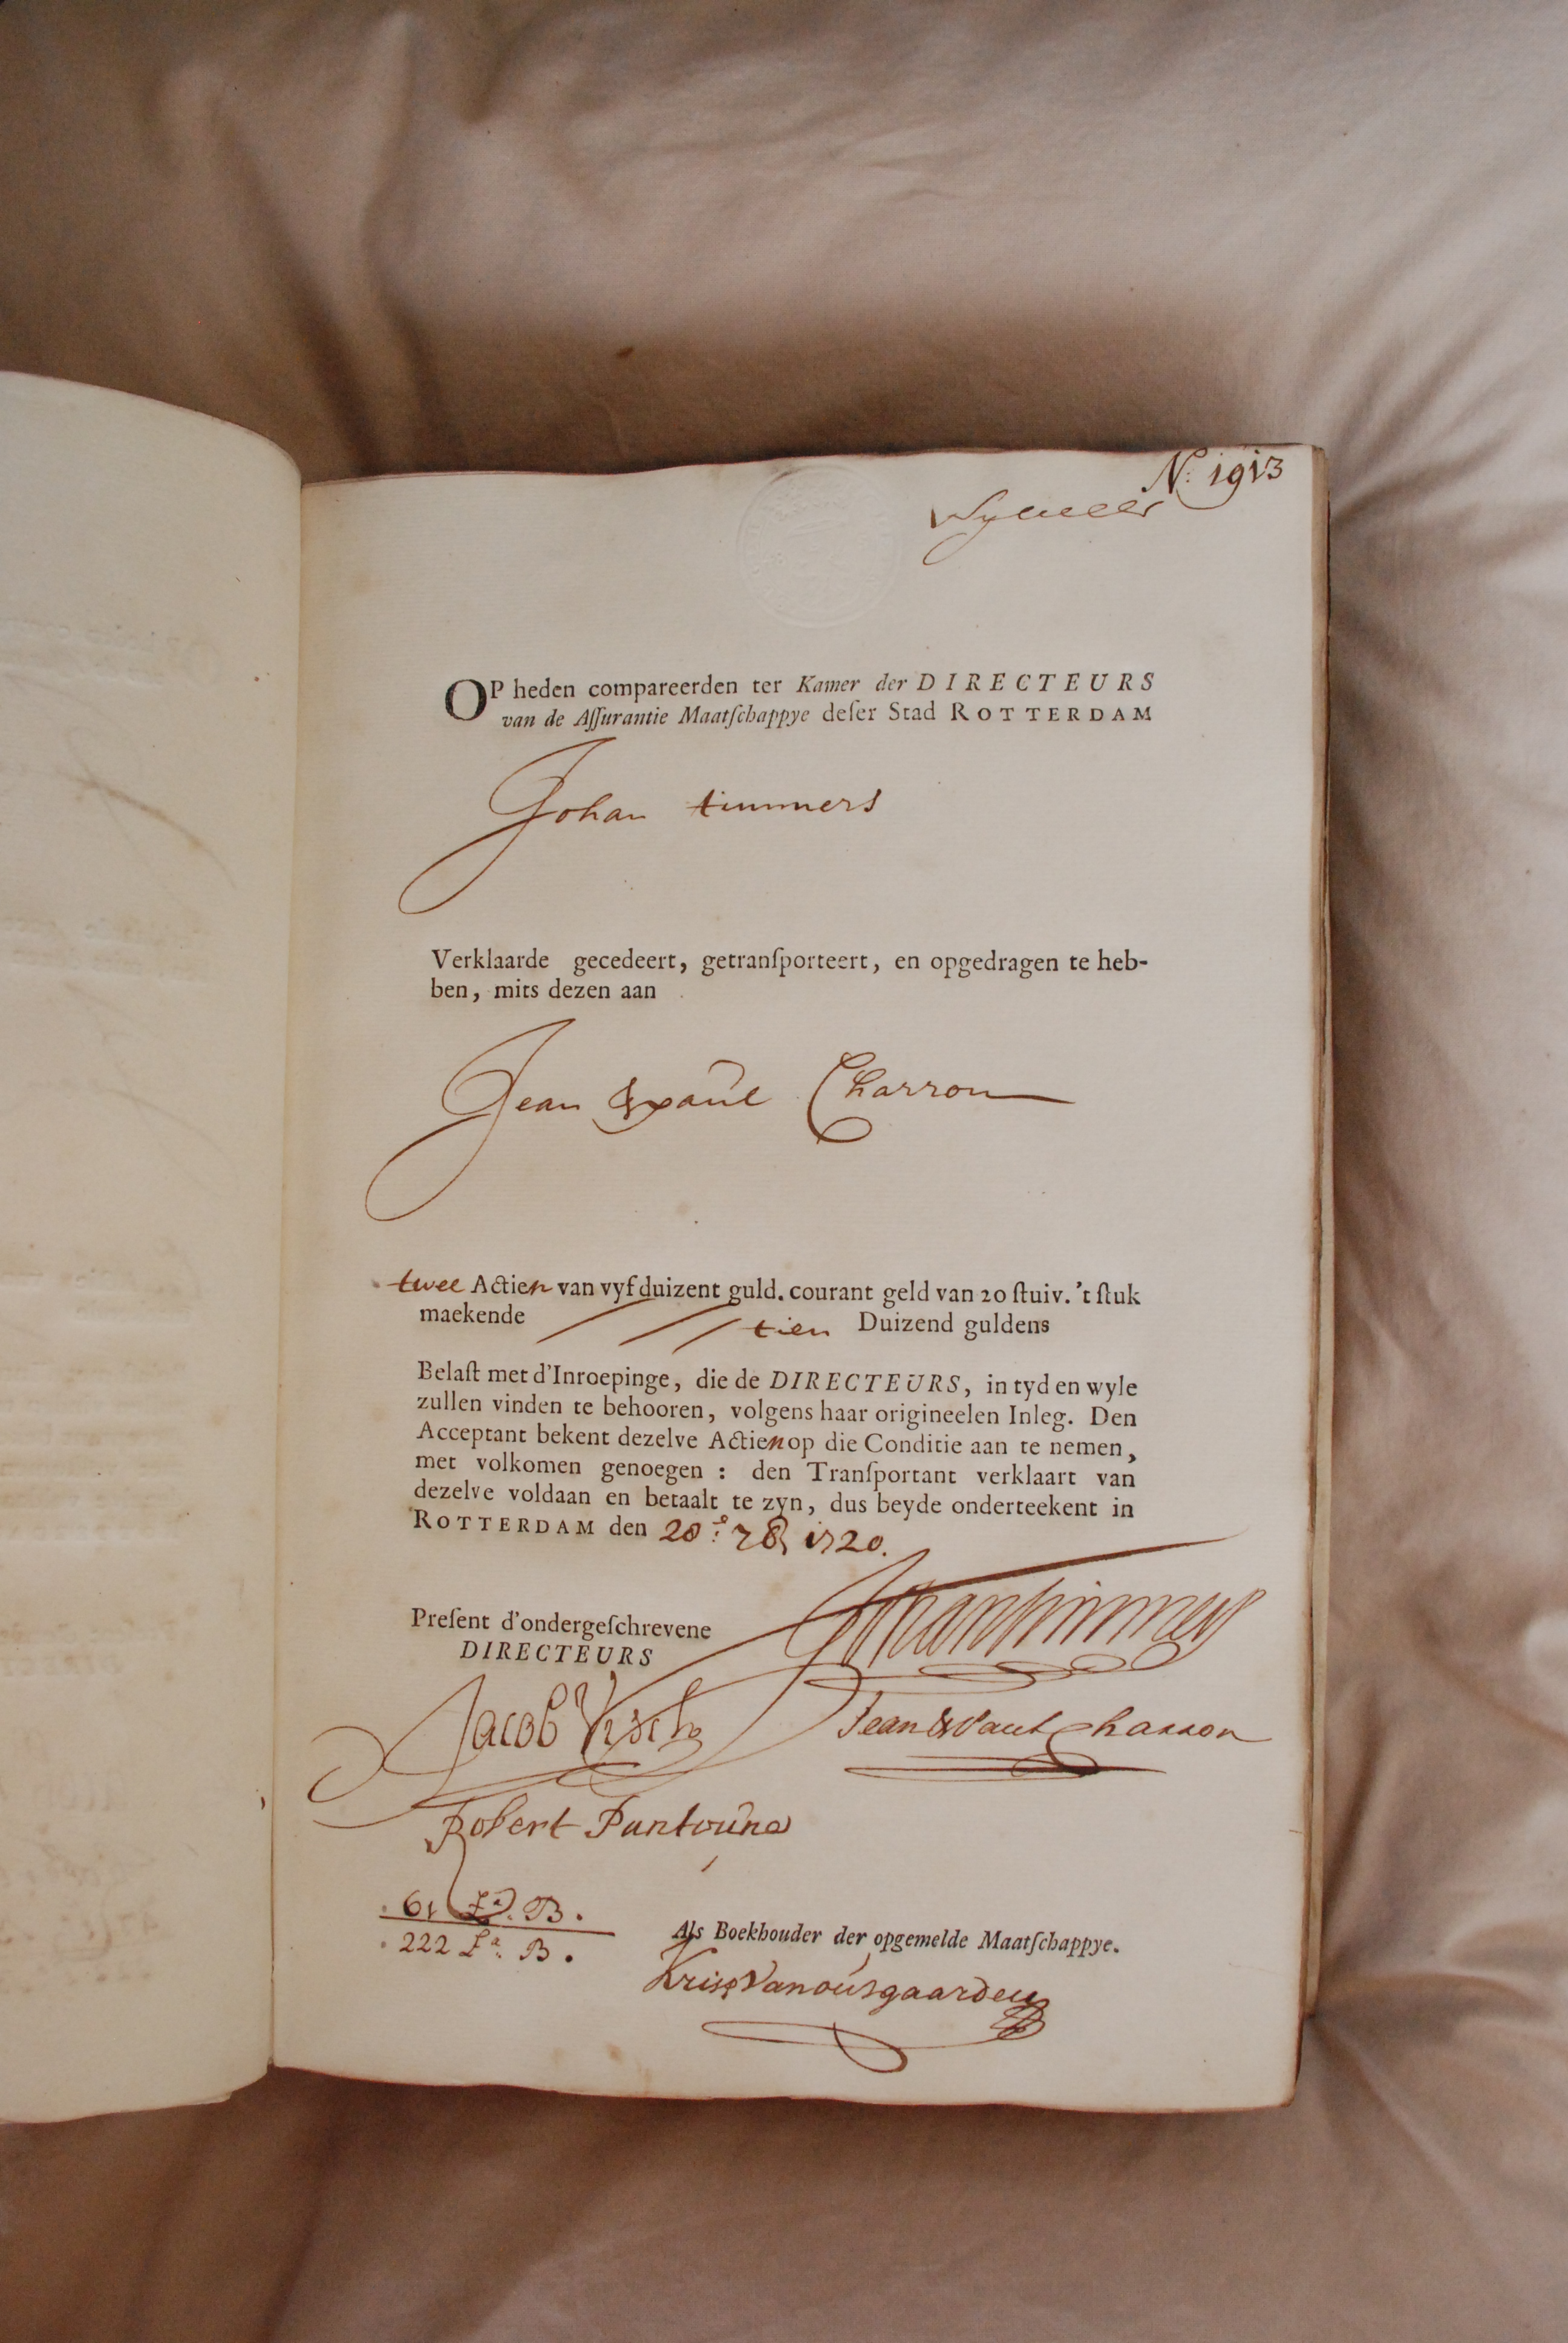 N.º 1913
OP heden compareerden ter Kamer der DIRECTEURS
van de Aſſurantie Maatſchappye deſer Stad ROTTERDAM
Johan timmers
Verklaarde gecedeert, getranſporteert, en opgedragen te heb-
ben, mits dezen aan
Jean & paúl Charron
twee Actien van vyfduizent guld. courant geld van 20 ſtuiv. 't ſtuk
maekende tien Duizend guldens
Belaſt met d'Inroepinge, die de DIRECTEURS, in tyd en wyle
zullen vinden te behooren, volgens haar origineelen Inleg. Den
Acceptant bekent dezelve Actien op die Conditie aan te nemen,
met volkomen genoegen : den Tranſportant verklaart van
dezelve voldaan en betaalt te zyn, dus beyde onderteekent in
ROTTERDAM den 20.e 7B 1720.
Johan timmers
Preſent d'ondergeſchrevene
DIRECTEURS
Jacob Visch
Jean & Paul Charron
Robert
61 La. B.
222 La. B.
Als Boekhouder der opgemelde Maatſchappye.